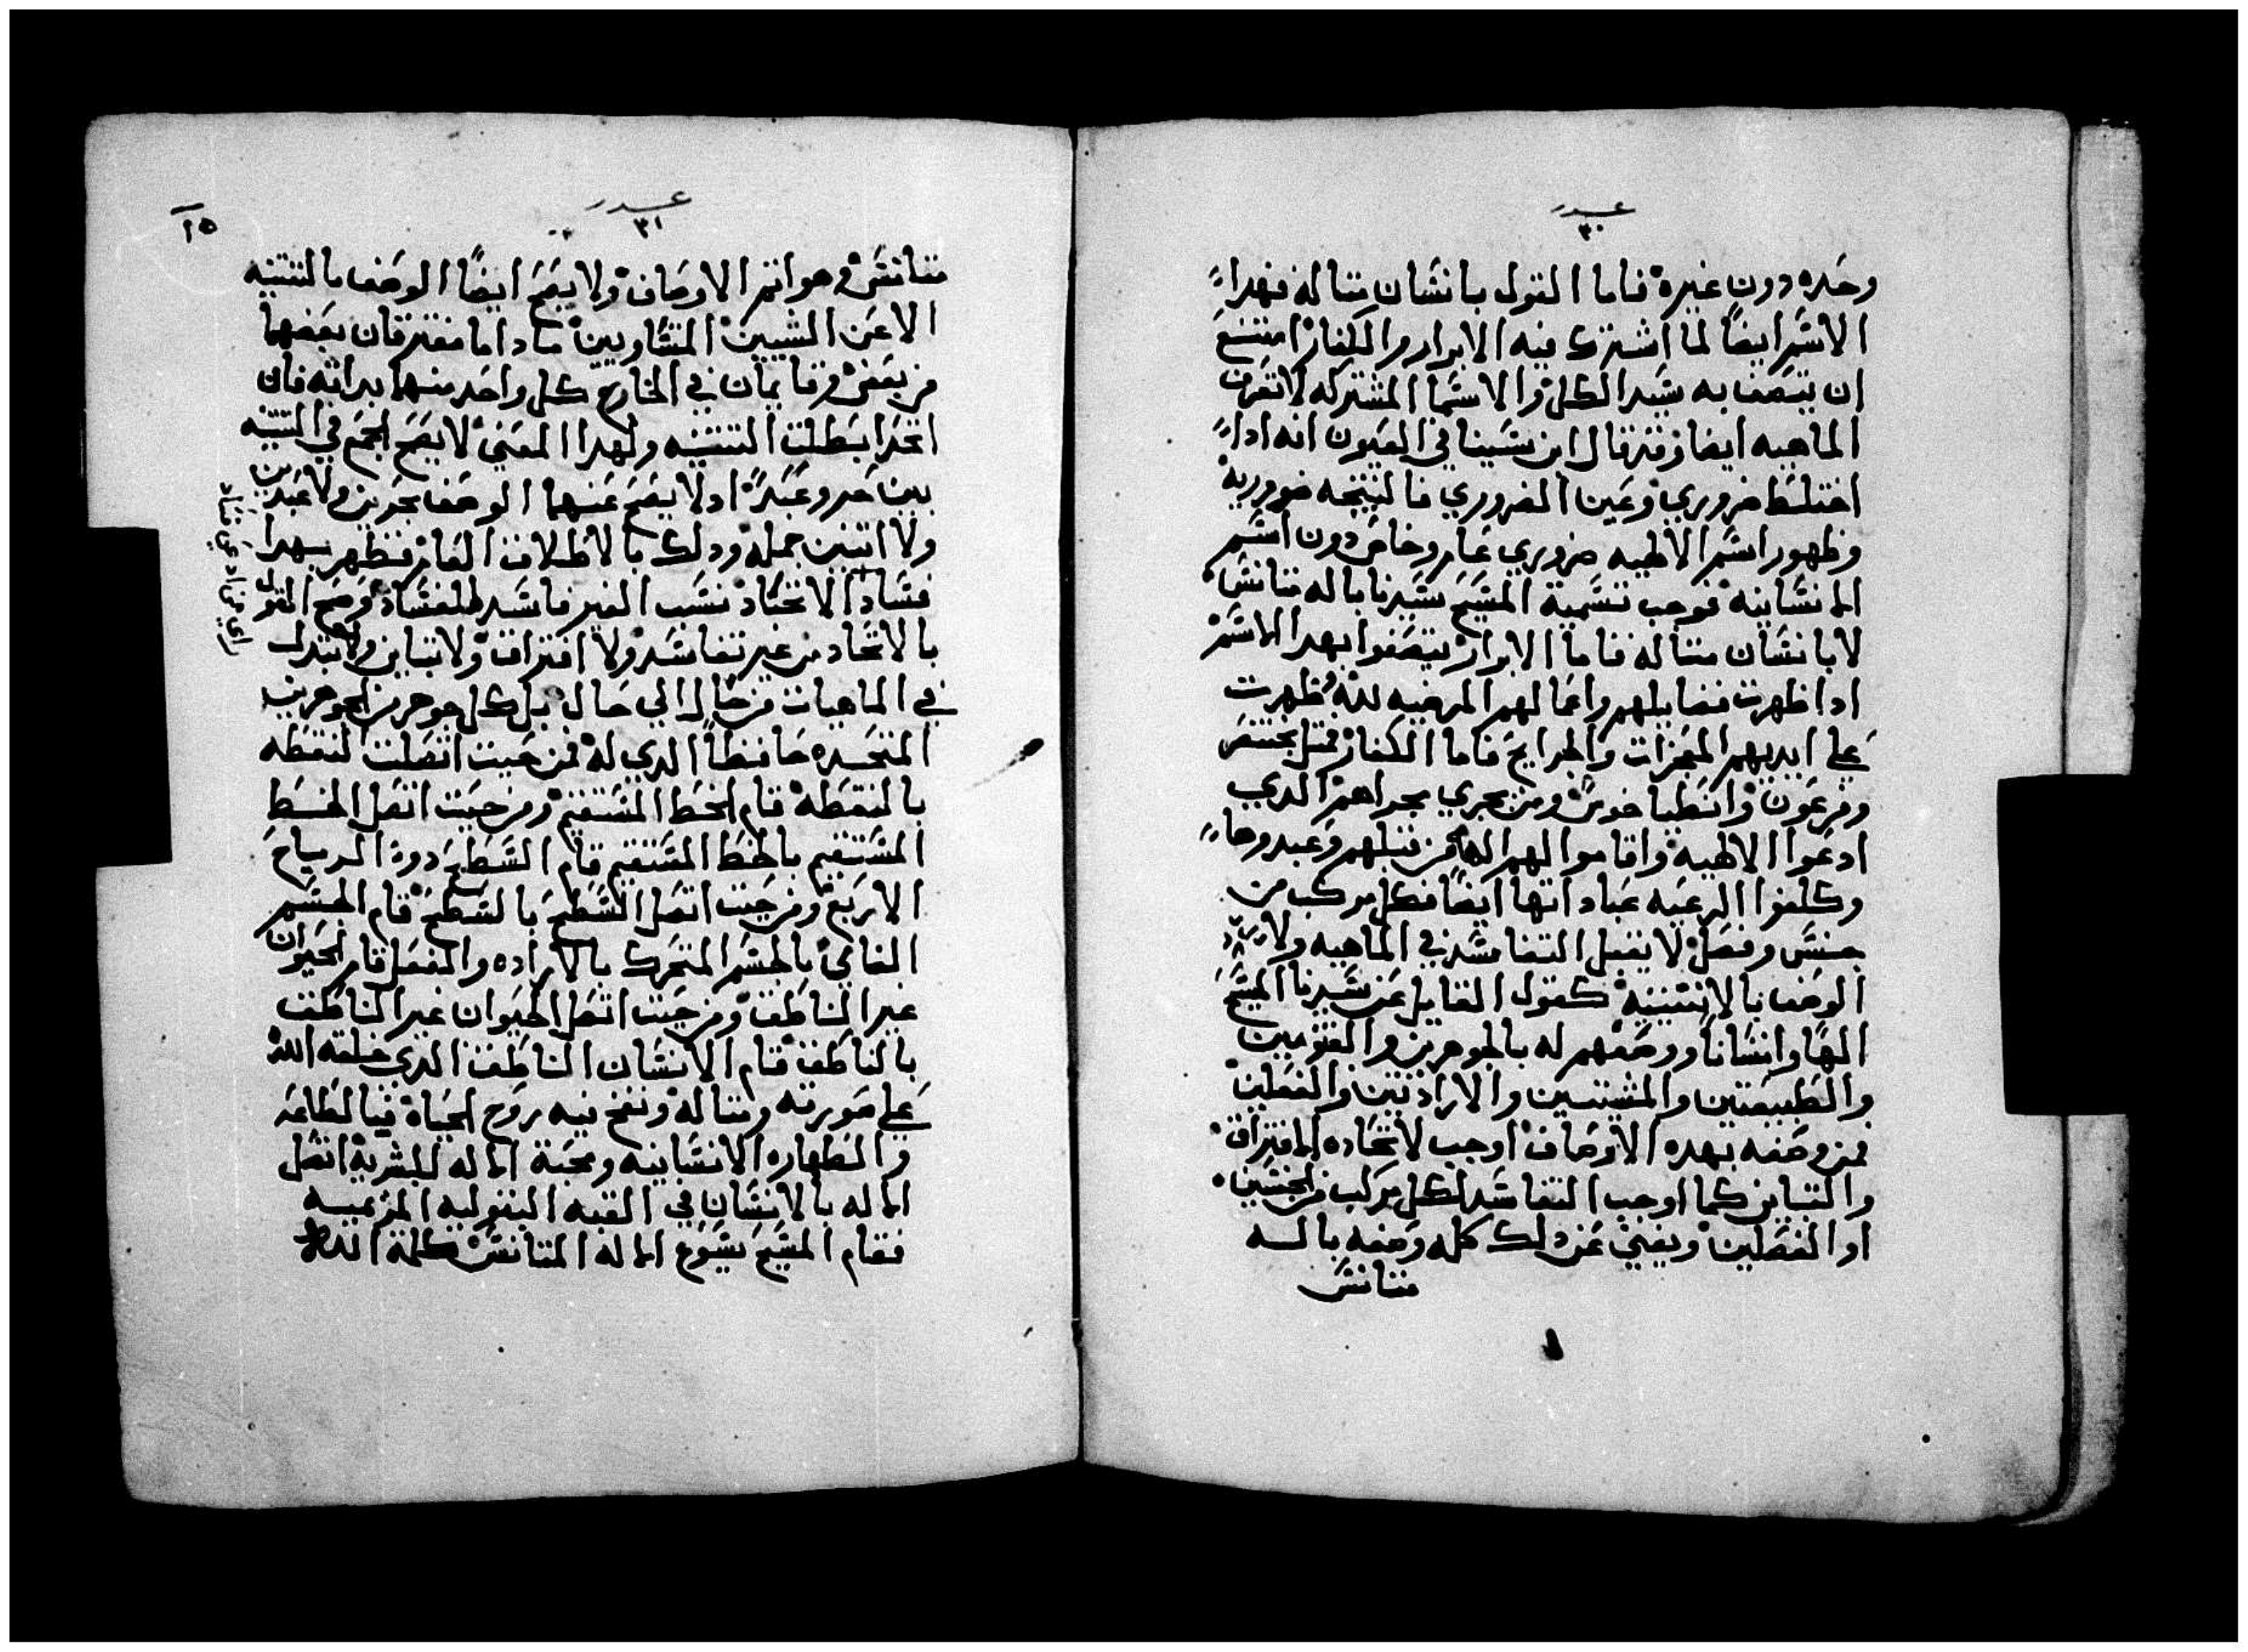 عدد
٣٠
وحده دون غيره فاما القول بانسان متاله فهدا
الاسم ايضاً لما اشترك فيه الابرار والكفار امتنع
ان يتصف به سيد الكل والاسما المشتركه لا تعرف
الماهيه ايضا وقد قال ابن سينا في العيون انه ادا
اختلط ضروري وغير الضروري فالنتيجه ضروريه
وظهور اسم الالهيه ضروري عام وخاص دون اسم
الانسانيه فوجب تسمية المسيح سيدنا باله متانس
لا بانسان متاله فاما الابرار يتصفوا بهدا الاسم
ادا ظهرت فضايلهم واعمالهم المرضيه لله وظهرت
علي ايديهم المعجزات والجرايح فاما الكفار فمتل بختنصر
وفرعون وانطياخوس ومن يجري مجراهم الدي
ادعوا الالهيه واقاموا لهم الها من قبلهم وعبدوها
وكلفوا الرعيه عباداتها ايضاً فكل مركب من
جنس وفصل لا يقبل التفاسد في الماهيه ولا
الوصف بالاتنينيه كقول القايل عن سيدنا المسيح
الهاً وانساناً ووصفهم له بالجوهرين والقنومين
والطبيعتين والمشيتين والارادتين والفعلين
فمن وصفه بهده الاوصاف اوجب لاتحاده الافتراق
والتباين كما اوجب التفاسد لكل مركب من الجنسين
او الفصلين ويغني عن دلك كله وصفه باله
متانس
عدد
٣١
١٥
متانس فهو اتم الاوصاف ولا يصح ايضاً الوصف بالتتنيه
الا عن الشيين المتساويين ما داما مفترقان بعضهما
من بعض وقايمان في الخارج كل واحد منهما بداته فان
اتحدا بطلت التتنيه ولهدا المعني لا يصح الجمع في التتنيه
بين حر وعبد اد لا يصح عنهما الوصف بحرين ولا عبدين
ولا اتنين جمله ودلك بالاطلاق العام فظهر بهدا
فساد الاتحاد نسب الغير فاسد للفساد وصح القول
بالاتحاد من غير تفاسد ولا افتراق ولا تباين ولا تبدل
في الماهيات من حال الي حال بل كل جوهر من الجوهرين
المتحده حافظاً الدي له فمن حيت اتصلت النقطه
بالنقطه قام الخط المستقيم ومن حيت اتصل الخط
المستقيم بالخط المستقيم قام السطح دوة الرياح
الاربع ومن حيت اتصل السطح بالسطح قام الجسم
النامي بالجسم المتحرك بالاراده والفعل قام الحيوان
غير الناطق ومن حيت اتصل الحيوان غير الناطق
بالناطق قام الانسان الناطق الدي خلقه الله
علي صورته ومتاله ونفخ فيه روح الحياة فبالطاعه
والطهاره الانسانيه ومحبة الاله للبشرية اتصل
الاله بالانسان في القبه البتوليه المريميه
فقام المسيح يسوع الاله المتانس كلمة الله